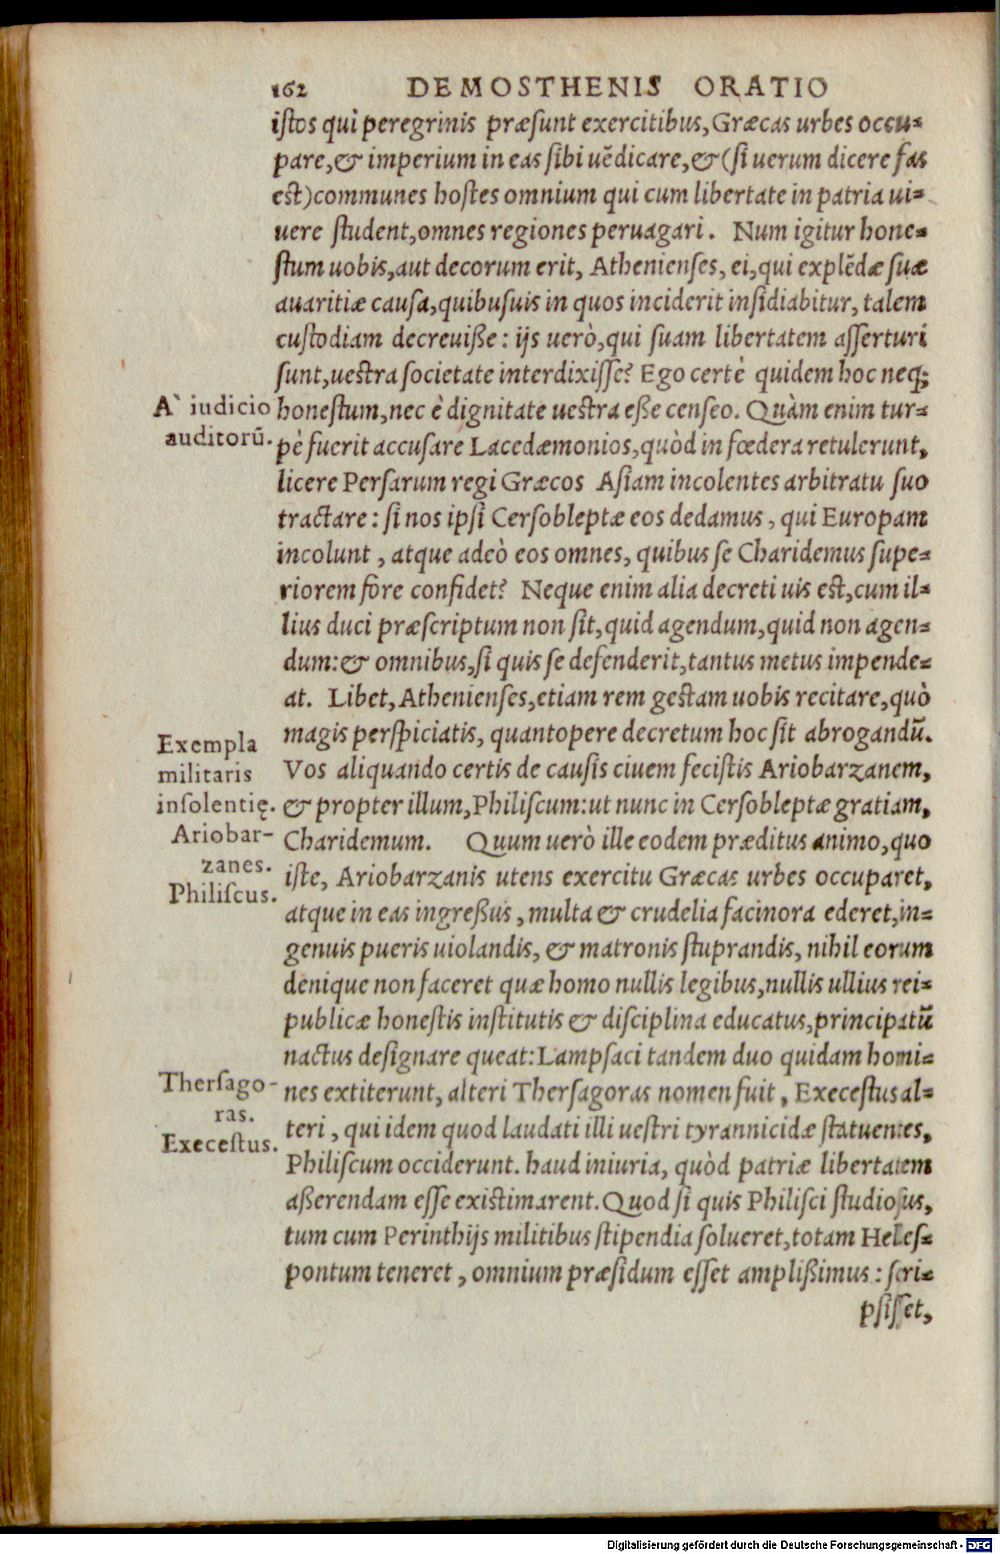 162 DEMOSTHENIS ORATIO
istos qui peregrinis præsunt exercitibus, Græcas urbes occu-
pare, & imperium in eas sibi uẽdicare, & (si uerum dicere fas
est) communes hostes omnium qui cum libertate in patria ui-
uere student, omnes regiones peruagari. Num igitur hone-
stum uobis, aut decorum erit, Athenienses, ei, qui explẽdæ suæ
auaritiæ causa, quibusuis in quos inciderit insidiabitur, talem
custodiam decreuiße: ijs uerò, qui suam libertatem asserturi
sunt, uestra societate interdixisse? Ego certè quidem hoc neq;
A` iudicio
auditorũ.
honestum, nec è dignitate uestra eße censeo. Quàm enim tur-
pè fuerit accusare Lacedæmonios, quòd in fœdera retulerunt,
licere Persarum regi Græcos Asiam incolentes arbitratu suo
tractare: si nos ipsi Cersobleptæ eos dedamus, qui Europam
incolunt, atque adeò eos omnes, quibus se Charidemus supe-
riorem fore confidet? Neque enim alia decreti uis est, cum il-
lius duci præscriptum non sit, quid agendum, quid non agen-
dum: & omnibus, si quis se defenderit, tantus metus impende-
at. Libet, Athenienses, etiam rem gestam uobis recitare, quò
magis perspiciatis, quantopere decretum hoc sit abrogandũ.
Exempla
militaris
insolentię.
Ariobar-
zanes.
Philiscus.
Vos aliquando certis de causis ciuem fecistis Ariobarzanem,
& propter illum, Philiscum: ut nunc in Cersobleptæ gratiam,
Charidemum. Quum uerò ille eodem præditus animo, quo
iste, Ariobarzanis utens exercitu Græcas urbes occuparet,
atque in eas ingreßus, multa & crudelia facinora ederet, in-
genuis pueris uiolandis, & matronis stuprandis, nihil eorum
denique non faceret quæ homo nullis legibus, nullis ullius rei-
publicæ honestis institutis & disciplina educatus, principatũ
nactus designare queat: Lampsaci tandem duo quidam homi-
Thersago-
ras.
Execestus.
nes extiterunt, alteri Thersagoras nomen fuit, Execestus al-
teri, qui idem quod laudati illi uestri tyrannicidæ statuentes,
Philiscum occiderunt. haud iniuria, quòd patriæ libertatem
aßerendam esse existimarent. Quod si quis Philisci studiosus,
tum cum Perinthijs militibus stipendia solueret, totam Heles-
pontum teneret, omnium præsidum esset amplißimus: scri-
psisset,
Digitalisierung gefördert durch die Deutsche Forschungsgemeinschaft - DFG